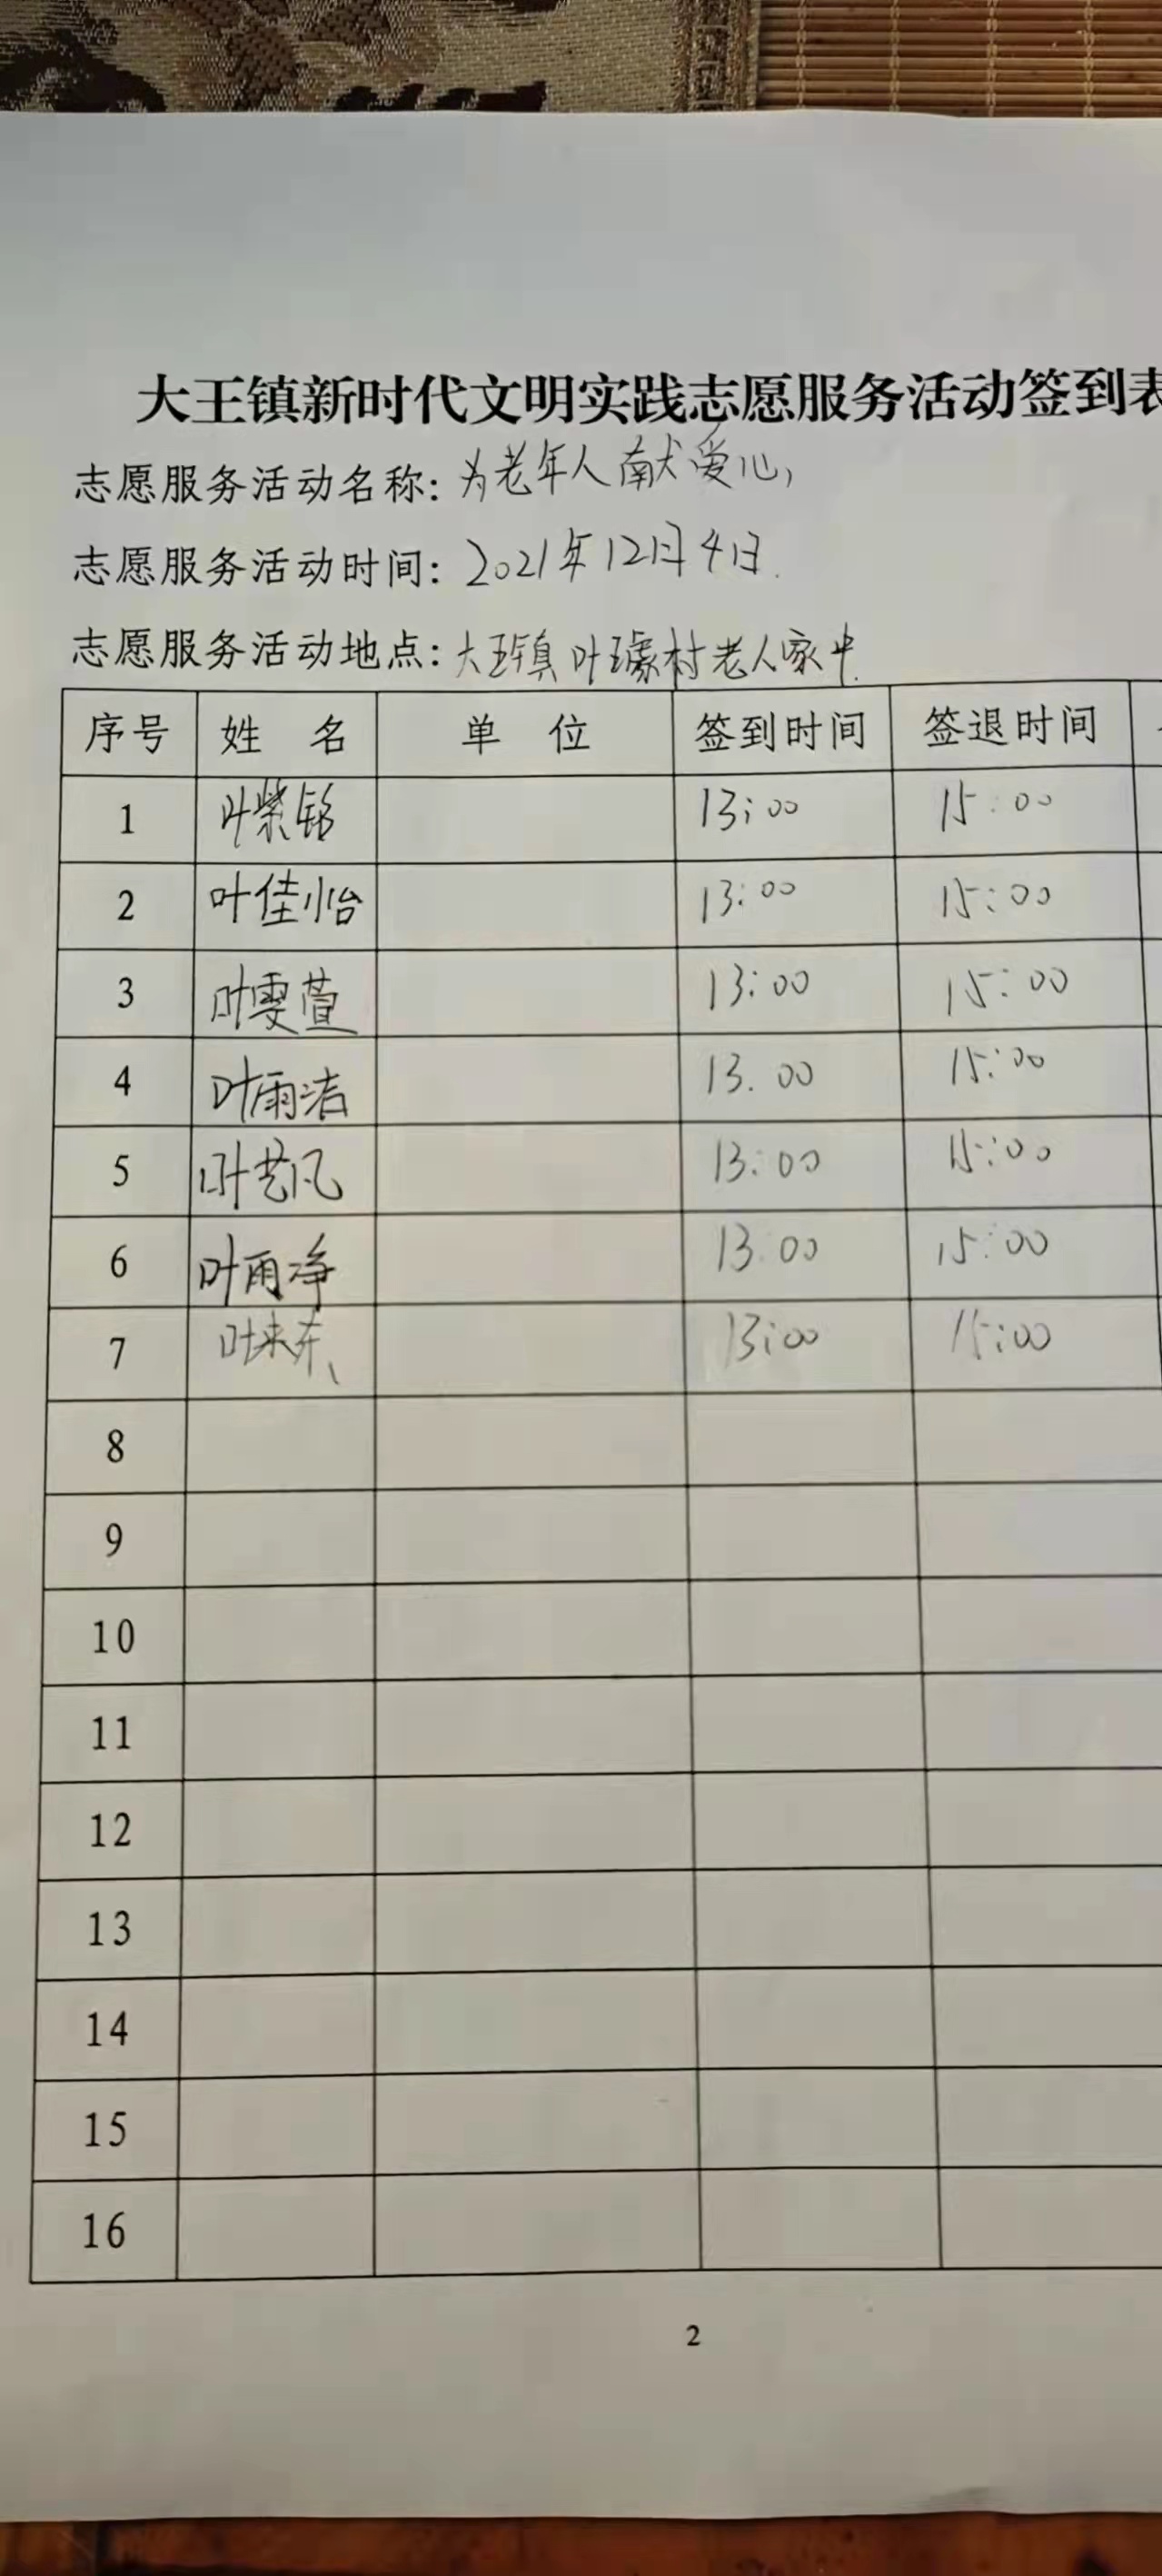 大王镇新时代文明实践志愿服务活动签到表
志愿服务活动名称: 为老年人献爱心,
志愿服务活动时间: 2021年12月4日.
志愿服务活动地点: 大王镇叶璩村老人家中.
序号 姓 名 单 位 签到时间 签退时间
1 叶紫铭 13:00 15:00
2 叶佳怡 13:00 15:00
3 叶雯萱 13:00 15:00
4 叶雨洁 13.00 15:00
5 叶艺凡 13:00 15:00
6 叶雨净 13:00 15:00
7 叶来东、 13:00 15:00
8
9
10
11
12
13
14
15
16
2